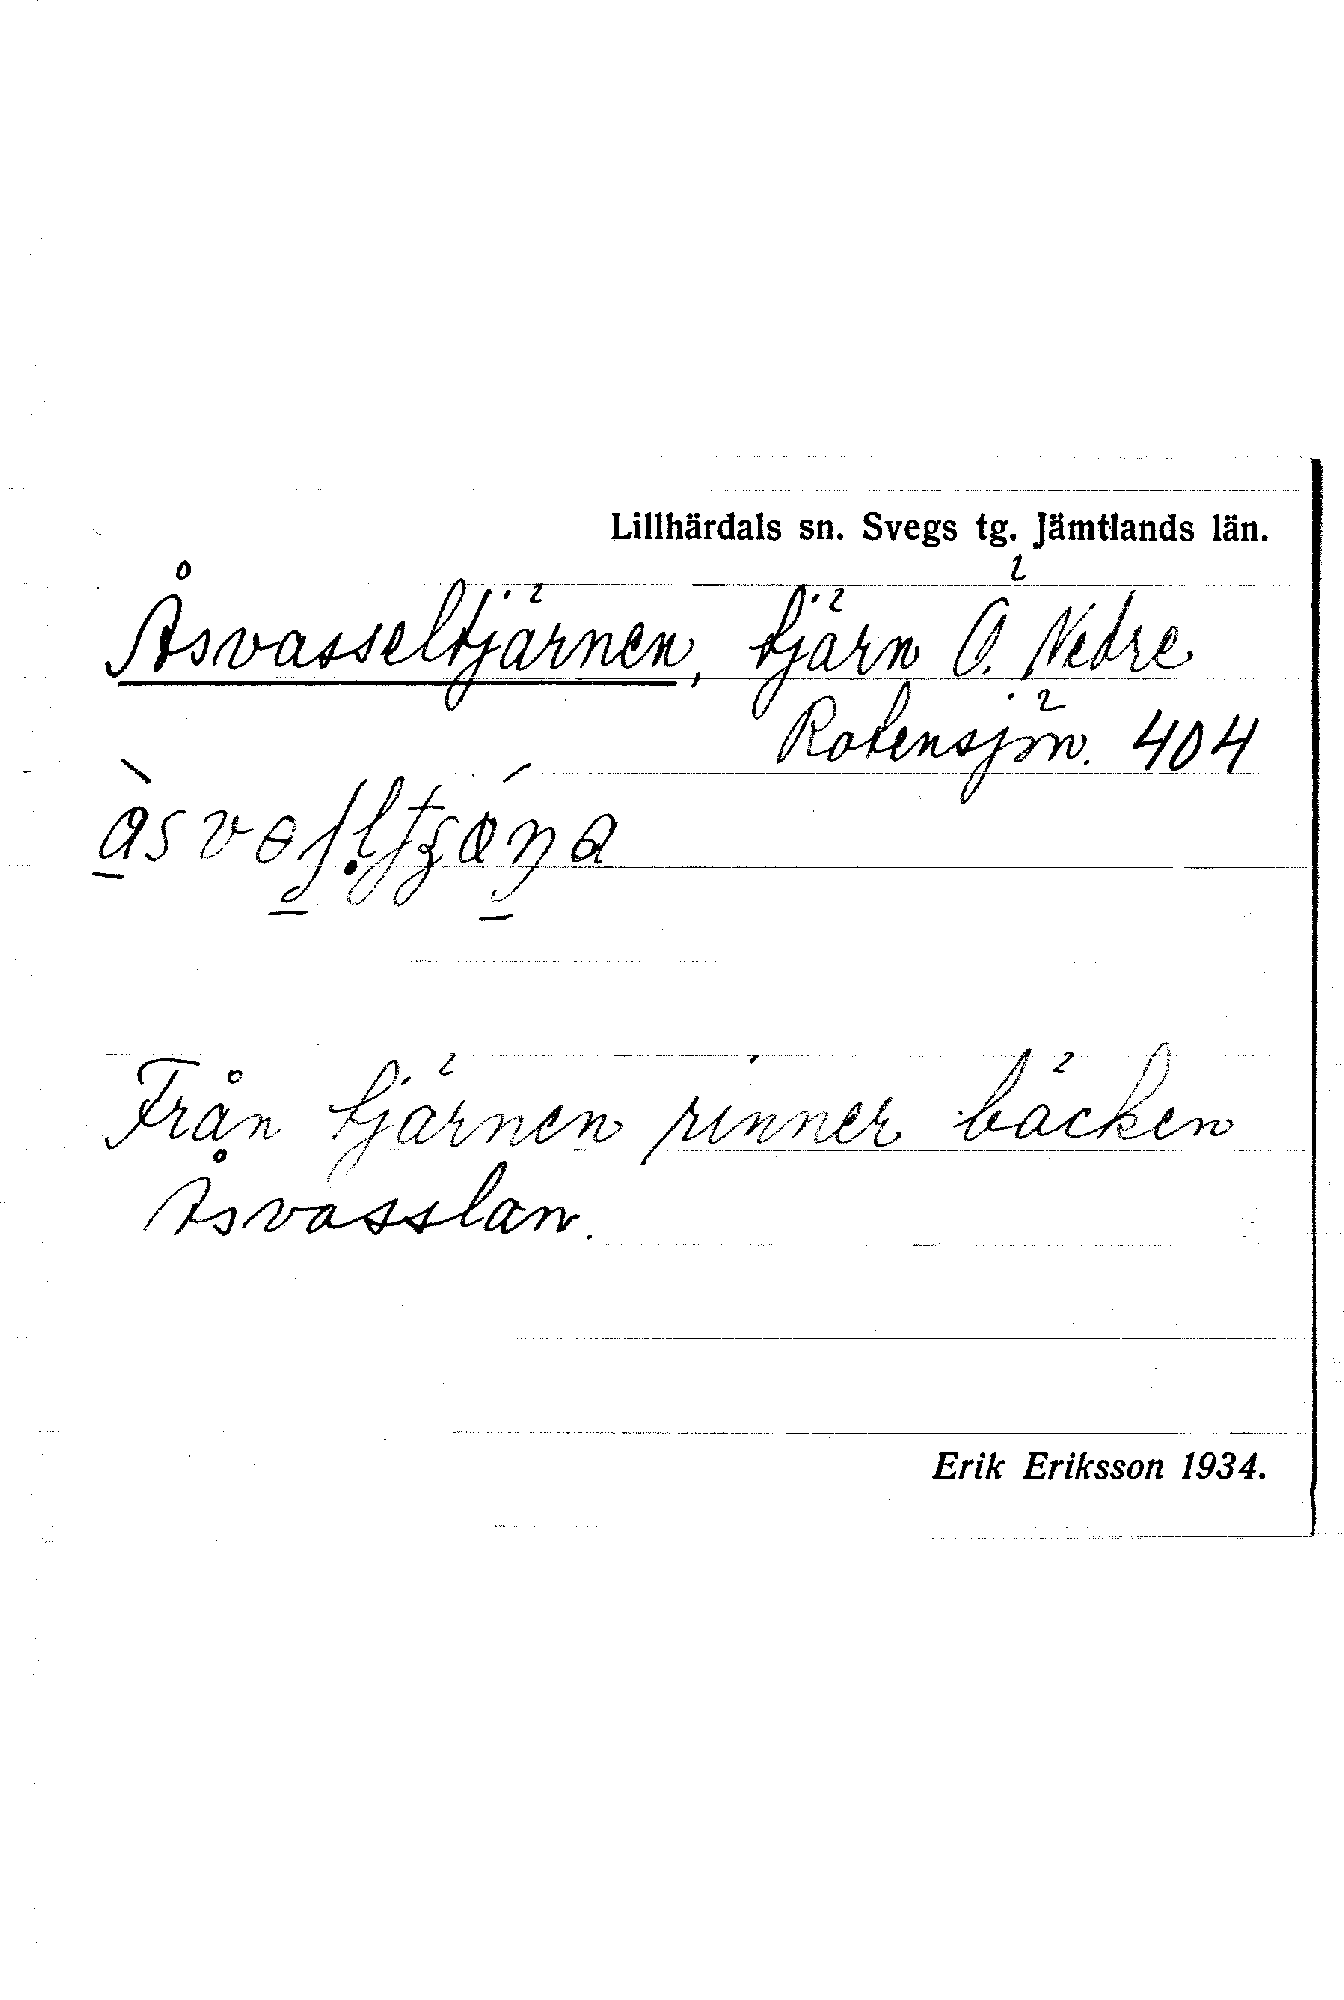 Lillhärdals sn. Svegs tg. Jämtlands län.
Åsvasseltjärnen, tjärn Ö. Nedre
Rotensjön. 404
Från tjärnen rinner bäcken
Åsvasslan.
Erik Eriksson 1934.